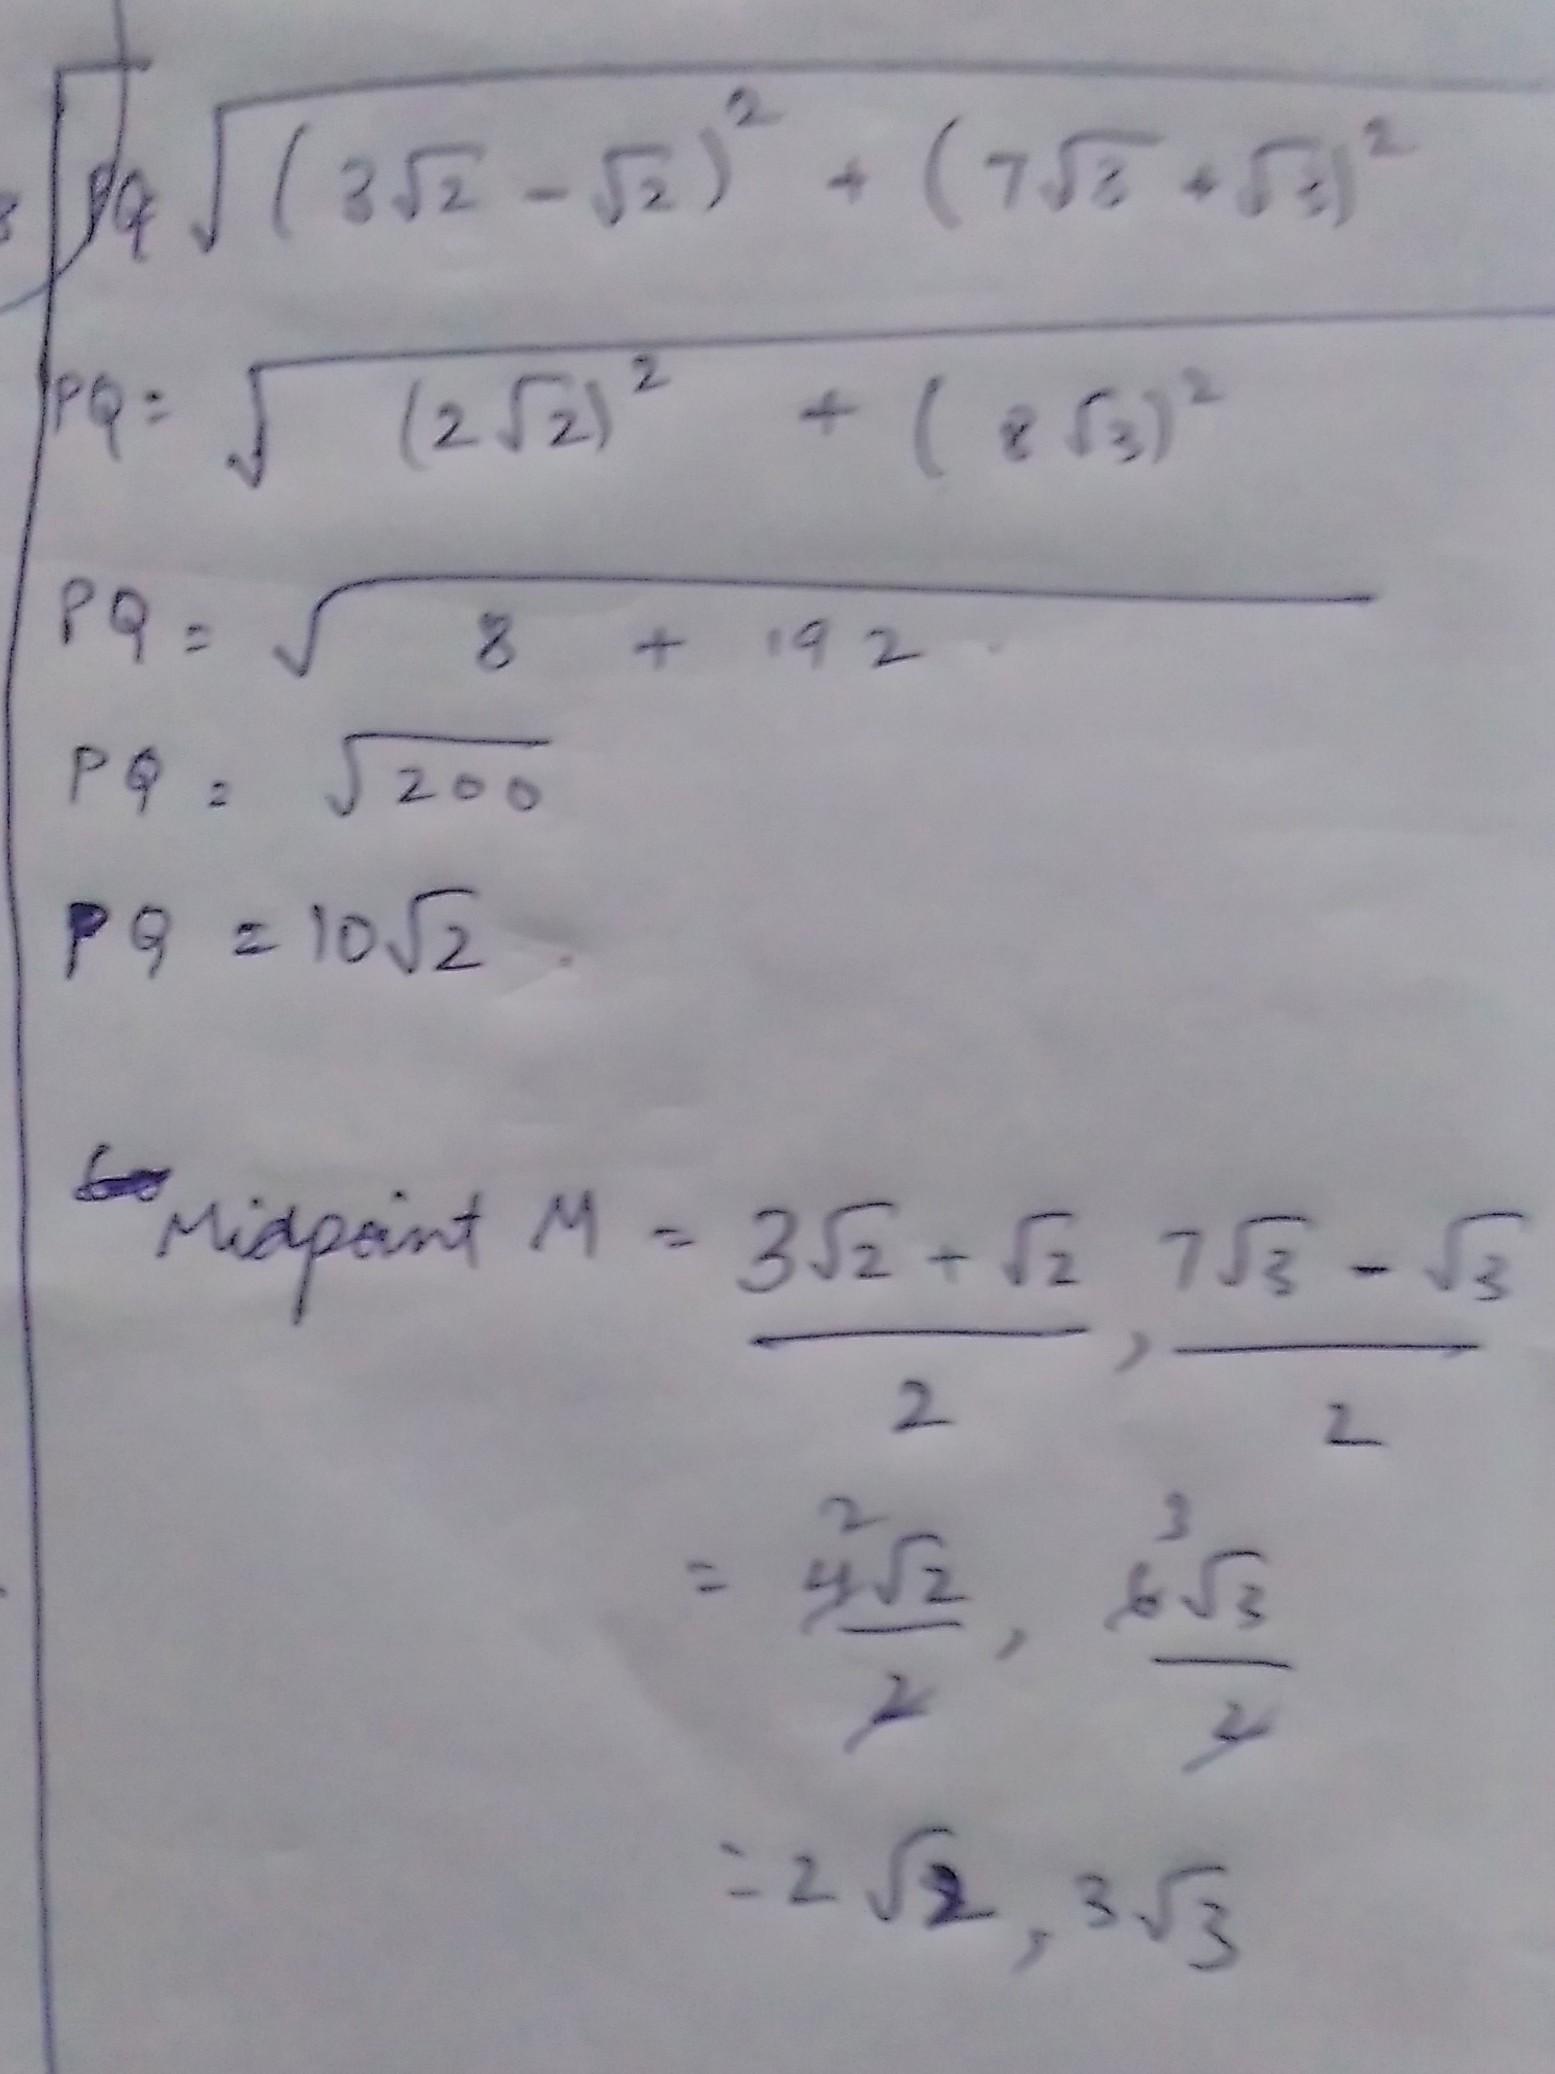 PQ √(3√2 - √2)² + (7√3 + √3)²
PQ = √(2√2)² + (8√3)²
PQ = √8 + 192
PQ = √200
PQ = 10√2
Midpoint M = 3√2 + √2 / 2 , 7√3 - √3 / 2
= 4√2 / 2 , 6√3 / 2
2 3
= 2√2 , 3√3